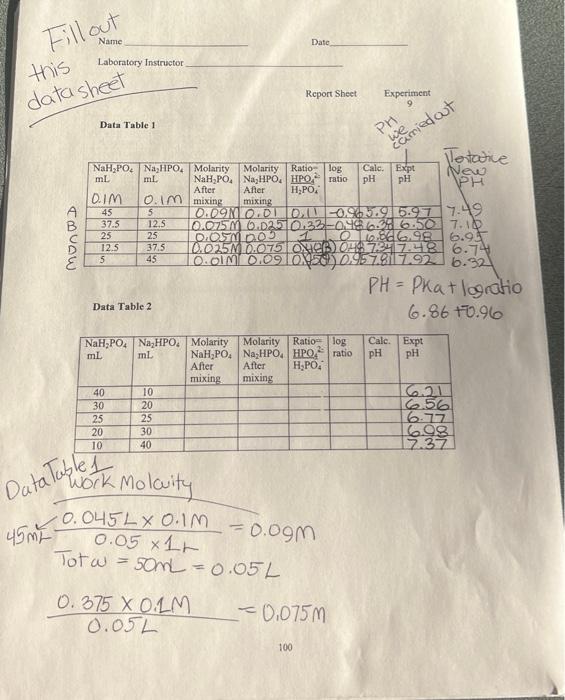 Fill out
this
data sheet
Name
Date
Laboratory Instructor
Report Sheet Experiment 9
PH we carried out
Data Table 1
Tentative New PH
NaH₂PO₄ mL Na₂HPO₄ mL Molarity NaH₂PO₄ After mixing Molarity Na₂HPO₄ After mixing Ratio= HPO₄²⁻ H₂PO₄⁻ log ratio Calc. pH Expt pH
0.1M 0.1M
A 45 5 0.09M 0.01 0.11 -0.96 5.9 5.97 7.49
B 37.5 12.5 0.075M 0.025 0.33 -0.48 6.38 6.50 7.10
C 25 25 0.05M 0.05 1 0 6.86 6.98 6.95
D 12.5 37.5 0.025M 0.075 0.48 7.34 7.48 6.74
E 5 45 0.01M 0.09 0.95 7.81 7.92 6.32
PH = PKa + log ratio
6.86 + 0.96
Data Table 2
NaH₂PO₄ mL Na₂HPO₄ mL Molarity NaH₂PO₄ After mixing Molarity Na₂HPO₄ After mixing Ratio= HPO₄²⁻ H₂PO₄⁻ log ratio Calc. pH Expt pH
40 10 6.21
30 20 6.56
25 25 6.77
20 30 6.98
10 40 7.37
Data Table 1
Work Molarity
45mL 0.045L X 0.1M = 0.09M
0.05 x 1L
Total = 50mL = 0.05L
0.375 X 0.1M = 0.075M
0.05L
100